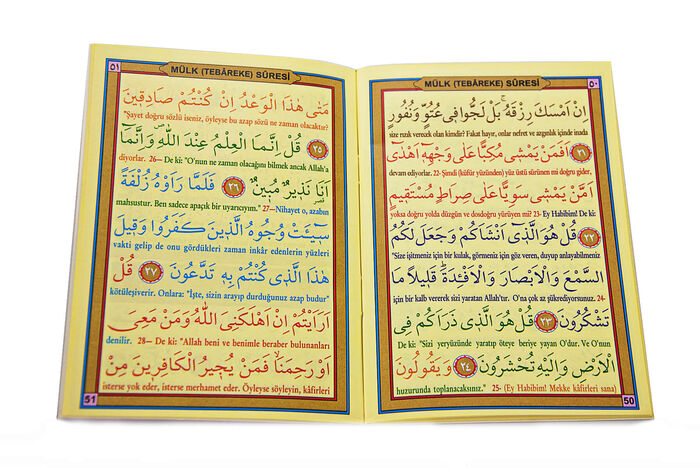 ٥٠
MÜLK (TEBÂREKE) SÛRESİ
اِنْ اَمْسَكَ رِزْقَهُۚ بَلْ لَجُّوا فٖى عُتُوٍّ وَنُفُورٍ
size rızık verecek olan kimdir? Fakat hayır, onlar nefret ve azgınlık içinde inada
﴿٢١﴾ اَفَمَنْ يَمْشٖى مُكِبًّا عَلٰى وَجْهِهٖٓ اَهْدٰٓى
devam ediyorlar. 22- Şimdi (küfür yüzünden) yüz üstü sürünen mi doğru gider,
اَمَّنْ يَمْشٖى سَوِيًّا عَلٰى صِرَاطٍ مُسْتَقٖيمٍ
yoksa doğru yolda düzgün ve dosdoğru yürüyen mi? 23- Ey Habibim! De ki:
﴿٢٢﴾ قُلْ هُوَ الَّذٖٓى اَنْشَاَكُمْ وَجَعَلَ لَكُمُ
"Size işitmeniz için bir kulak, görmeniz için göz veren, duyup anlayabilmeniz
السَّمْعَ وَالْاَبْصَارَ وَالْاَفْـِٔدَةَۜ قَلٖيلًا مَا
için bir kalb vererek sizi yaratan Allah'tır. O'na çok az şükrediyorsunuz. 24-
تَشْكُرُونَ ﴿٢٣﴾ قُلْ هُوَ الَّذٖى ذَرَاَكُمْ فِى
De ki: "Sizi yeryüzünde yaratıp öteye beriye yayan O'dur. Ve O'nun
الْاَرْضِ وَاِلَيْهِ تُحْشَرُونَ ﴿٢٤﴾ وَيَقُولُونَ
huzurunda toplanacaksınız." 25- (Ey Habibim! Mekke kâfirleri sana)
50
٥١
MÜLK (TEBÂREKE) SÛRESİ
مَتٰى هٰذَا الْوَعْدُ اِنْ كُنْتُمْ صَادِقٖينَ
"Şayet doğru sözlü iseniz, öyleyse bu azap sözü ne zaman olacaktır?
﴿٢٥﴾ قُلْ اِنَّمَا الْعِلْمُ عِنْدَ اللّٰهِۖ وَاِنَّمَٓا
diyorlar. 26— De ki: "O'nun ne zaman olacağını bilmek ancak Allah'a
اَنَا۬ نَذٖيرٌ مُبٖينٌ ﴿٢٦﴾ فَلَمَّا رَاَوْهُ زُلْفَةً
mahsustur. Ben sadece apaçık bir uyarıcıyım." 27—Nihayet o, azabın
سٖٓيـَٔتْ وُجُوهُ الَّذٖينَ كَفَرُوا وَقٖيلَ
vakti gelip de onu gördükleri zaman inkâr edenlerin yüzleri
هٰذَا الَّذٖى كُنْتُمْ بِهٖ تَدَّعُونَ ﴿٢٧﴾ قُلْ
kötüleşiverir. Onlara: "İşte, sizin arayıp durduğunuz azap budur"
اَرَاَيْتُمْ اِنْ اَهْلَكَنِىَ اللّٰهُ وَمَنْ مَعِىَ
denilir. 28— De ki: "Allah beni ve benimle beraber bulunanları
اَوْ رَحِمَنَاۙ فَمَنْ يُجٖيرُ الْكَافِرٖينَ مِنْ
isterse yok eder, isterse merhamet eder. Öyleyse söyleyin, kâfirleri
51